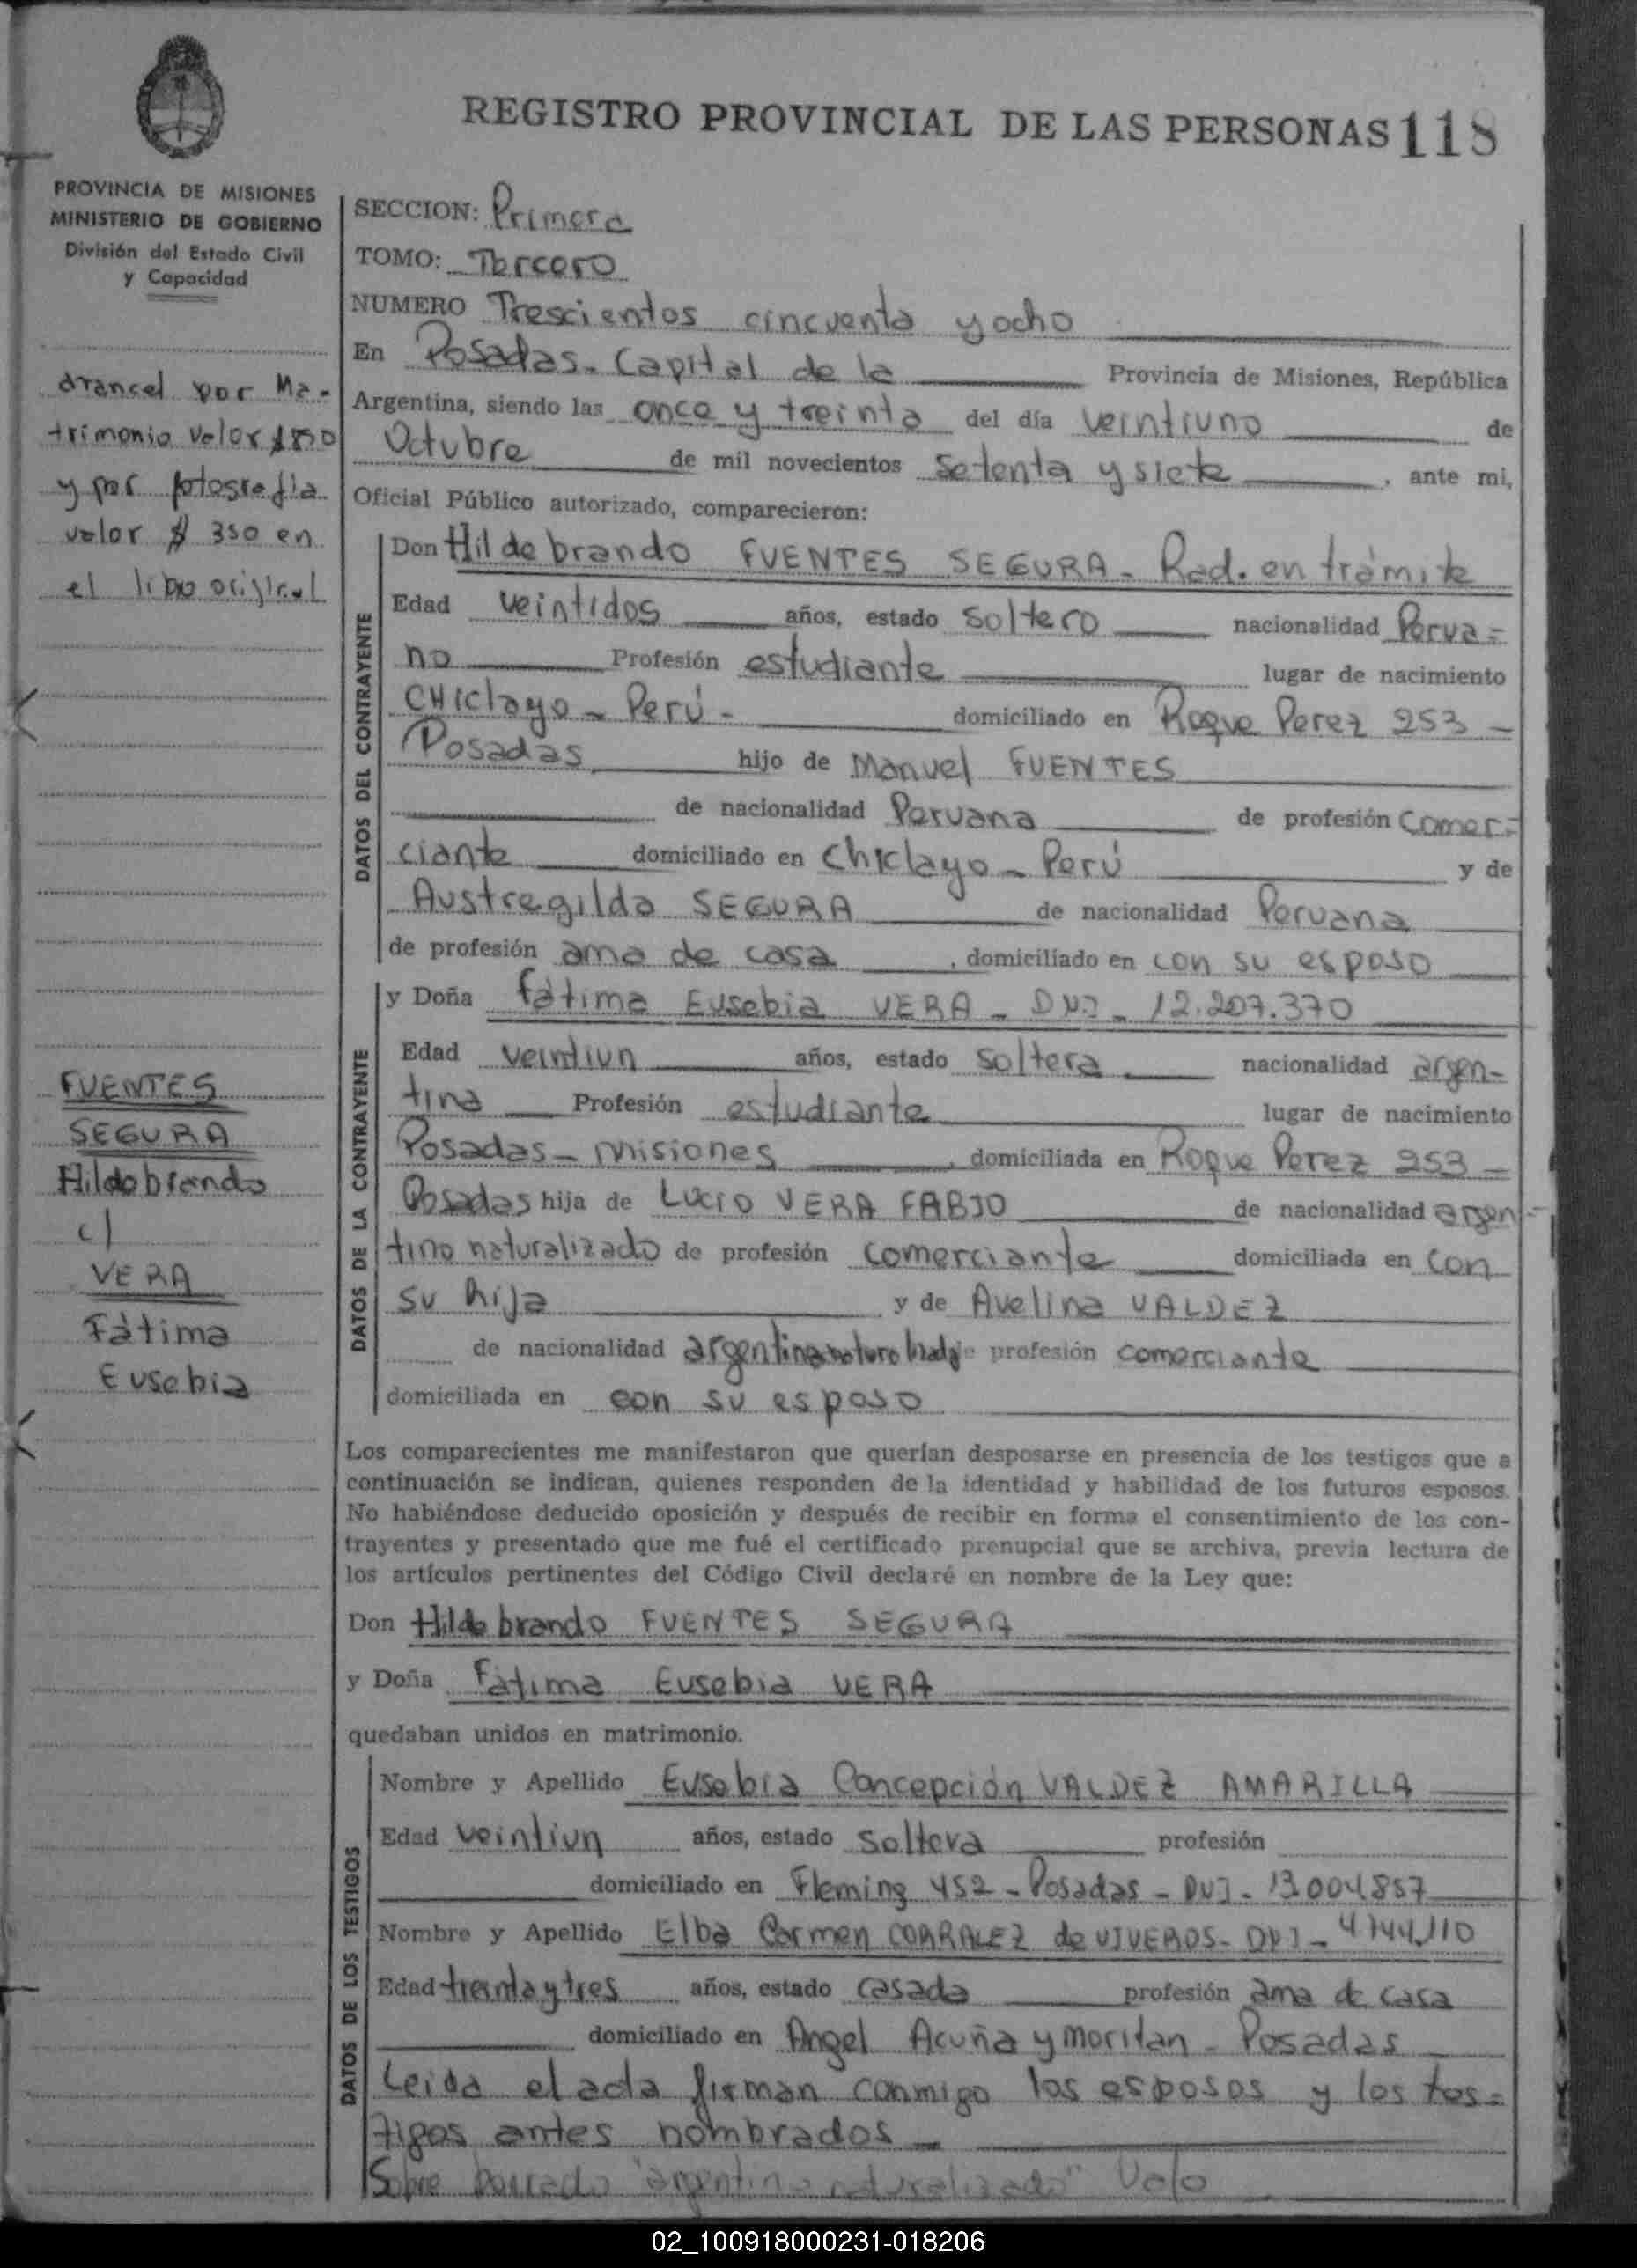 REGISTRO PROVINCIAL DE LAS PERSONAS 118
PROVINCIA DE MISIONES
MINISTERIO DE GOBIERNO
División del Estado Civil
y Capacidad
arancel por Ma-
trimonio valor $850
y por fotografía
valor $ 350 en
el libro original
FUENTES
SEGURA
Hildebrando
c/
VERA
Fátima
Eusebia
SECCION: Primera
TOMO: Tercero
NUMERO Trescientos cincuenta y ocho
En Posadas. Capital de la Provincia de Misiones, República
Argentina, siendo las once y treinta del día veintiuno de
Octubre de mil novecientos setenta y siete, ante mi,
Oficial Público autorizado, comparecieron:
DATOS DEL CONTRAYENTE
Don Hildebrando FUENTES SEGURA - Rad. en trámite
Edad veintidos años, estado soltero nacionalidad Perua=
no Profesión estudiante lugar de nacimiento
CHiclayo - Perú - domiciliado en Roque Perez 253 -
Posadas hijo de Manuel FUENTES
de nacionalidad Peruana de profesión Comer=
ciante domiciliado en Chiclayo - Perú y de
Austregilda SEGURA de nacionalidad Peruana
de profesión ama de casa, domiciliado en con su esposo
DATOS DE LA CONTRAYENTE
y Doña Fátima Eusebia VERA - DNI - 12.207.370
Edad veintiun años, estado soltera nacionalidad argen-
tina Profesión estudiante lugar de nacimiento
Posadas - Misiones, domiciliada en Roque Perez 253 -
Posadas hija de Lucio VERA FABIO de nacionalidad argen-
tino naturalizado de profesión comerciante domiciliada en con
su hija y de Avelina VALDEZ
de nacionalidad argentina de profesión comerciante
domiciliada en con su esposo
Los comparecientes me manifestaron que querían desposarse en presencia de los testigos que a
continuación se indican, quienes responden de la identidad y habilidad de los futuros esposos.
No habiéndose deducido oposición y después de recibir en forma el consentimiento de los con-
trayentes y presentado que me fué el certificado prenupcial que se archiva, previa lectura de
los artículos pertinentes del Código Civil declaré en nombre de la Ley que:
Don Hildebrando FUENTES SEGURA
y Doña Fátima Eusebia VERA
quedaban unidos en matrimonio.
DATOS DE LOS TESTIGOS
Nombre y Apellido Eusebia Concepción VALDEZ AMARILLA
Edad veintiun años, estado soltera profesión
domiciliado en Fleming 452 - Posadas - DNI - 13004857
Nombre y Apellido Elba Carmen CORRALEZ de VIVEROS - DNI - 4744.110
Edad treinta y tres años, estado casada profesión ama de casa
domiciliado en Angel Acuña y Moritan - Posadas
Leida el acta firman conmigo los esposos y los tes=
tigos antes nombrados -
Sobre borrado "argentino naturalizado" Vale
02_100918000231-018206